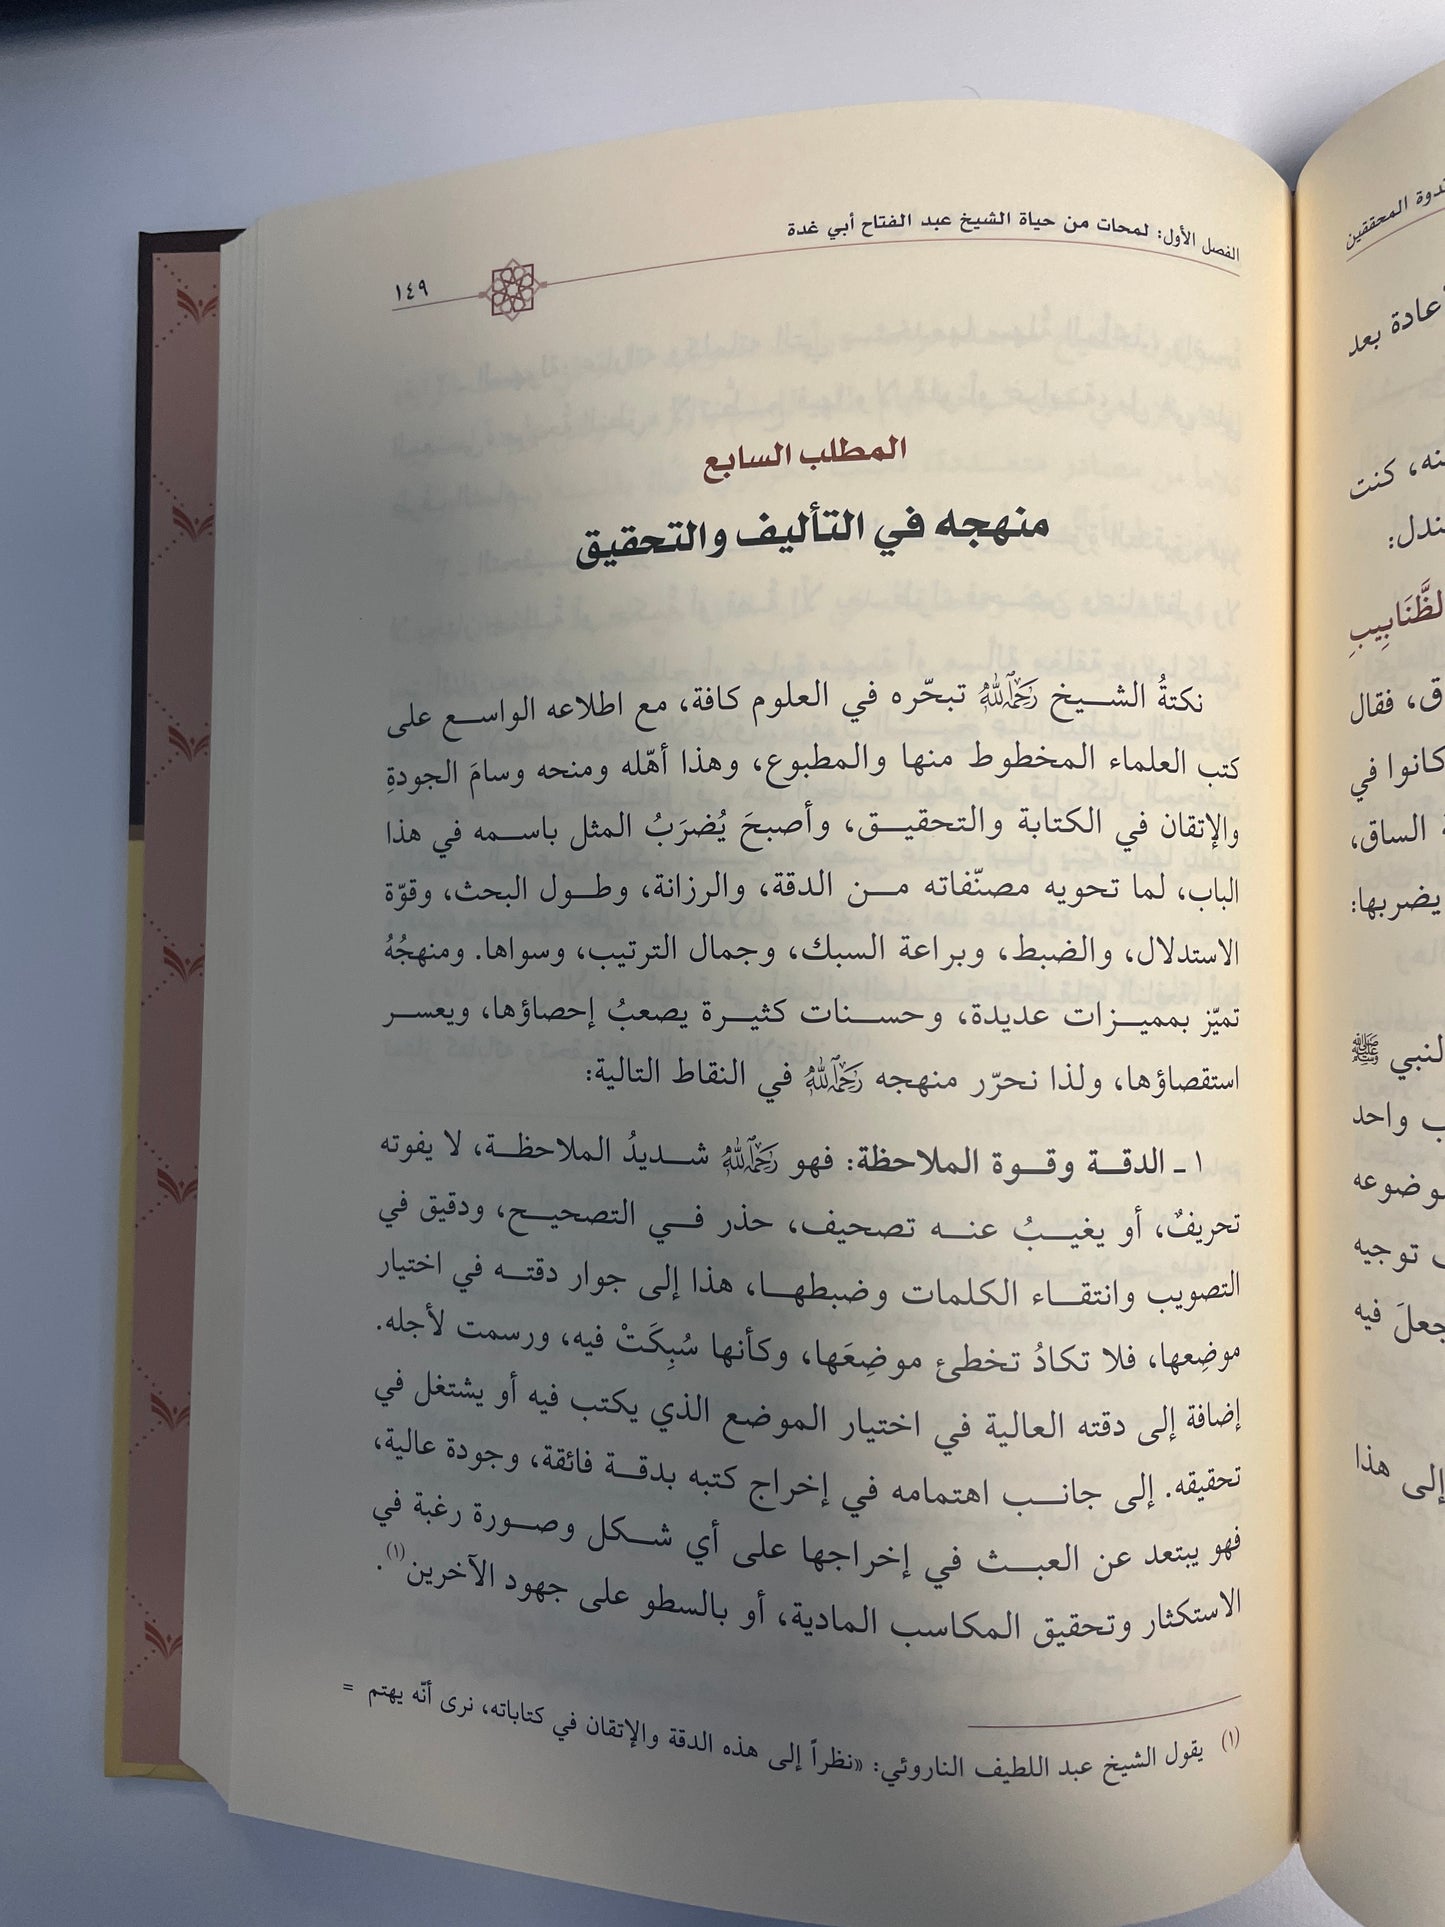 الفصل الأول: لمحات من حياة الشيخ عبد الفتاح أبي غدة
١٤٩
المطلب السابع
منهجه في التأليف والتحقيق
نكتةُ الشيخ رَحِمَهُ اللَّهُ تبحّره في العلوم كافة، مع اطلاعه الواسع على
كتب العلماء المخطوط منها والمطبوع، وهذا أهّله ومنحه وسامَ الجودةِ
والإتقان في الكتابة والتحقيق، وأصبحَ يُضرَبُ المثل باسمه في هذا
الباب، لما تحويه مصنّفاته من الدقة، والرزانة، وطول البحث، وقوّة
الاستدلال، والضبط، وبراعة السبك، وجمال الترتيب، وسواها. ومنهجُهُ
تميّز بمميزات عديدة، وحسنات كثيرة يصعبُ إحصاؤها، ويعسر
استقصاؤها، ولذا نحرّر منهجه رَحِمَهُ اللَّهُ في النقاط التالية:
١ ـ الدقة وقوة الملاحظة: فهو رَحِمَهُ اللَّهُ شديدُ الملاحظة، لا يفوته
تحريفٌ، أو يغيبُ عنه تصحيف، حذر في التصحيح، ودقيق في
التصويب وانتقاء الكلمات وضبطها، هذا إلى جوار دقته في اختيار
موضِعها، فلا تكادُ تخطئ موضِعَها، وكأنها سُبِكَتْ فيه، ورسمت لأجله.
إضافة إلى دقته العالية في اختيار الموضع الذي يكتب فيه أو يشتغل في
تحقيقه. إلى جانب اهتمامه في إخراج كتبه بدقة فائقة، وجودة عالية،
فهو يبتعد عن العبث في إخراجها على أي شكل وصورة رغبة في
الاستكثار وتحقيق المكاسب المادية، أو بالسطو على جهود الآخرين(١).
(١) يقول الشيخ عبد اللطيف الناروئي: «نظراً إلى هذه الدقة والإتقان في كتاباته، نرى أنّه يهتم =
ندوة المحققين
عادة بعد
كنت
ندل:
الظَّنَابِيبِ
ق، فقال
كانوا في
الساق،
يضربها:
لنبي ﷺ
ب واحد
وضوعه
توجيه
جعلَ فيه
إلى هذا